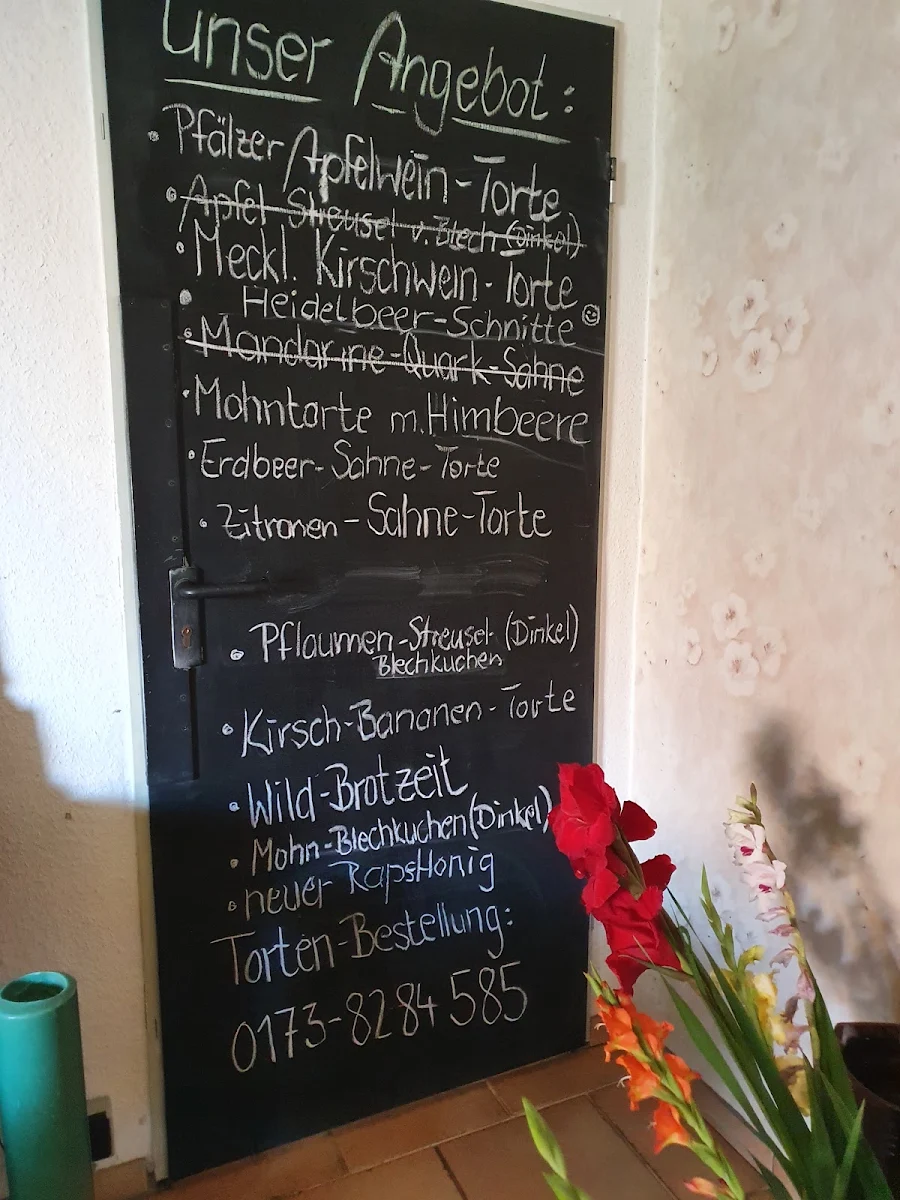 Unser Angebot:
• Pfälzer Apfelwein-Torte
• Apfel Streusel v. Blech (Dinkel)
• Meckl. Kirschwein-Torte
• Heidelbeer-Schnitte ☺
• Mandarine-Quark-Sahne
• Mohntorte m. Himbeere
• Erdbeer-Sahne-Torte
• Zitronen-Sahne-Torte
• Pflaumen-Streusel-(Dinkel)
Blechkuchen
• Kirsch-Bananen-Torte
• Wild-Brotzeit
• Mohn-Blechkuchen (Dinkel)
• neuer RapsHonig
Torten-Bestellung:
0173-8284585